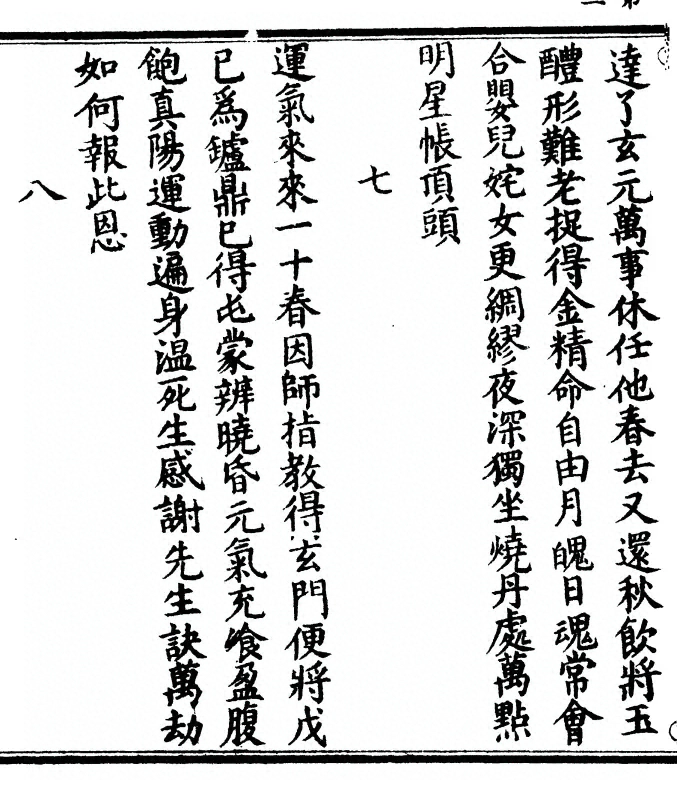 達了玄元萬事休任他春去又還秋飲將玉
醴形難老捉得金精命自由月魄日魂常會
合嬰兒姹女更綢繆夜深獨坐燒丹處萬點
明星帳頂頭
七
運氣來來一十春因師指教得玄門便將戊
已爲鑪鼎已得屯蒙辨曉昏元氣充喰盈腹
飽真陽運動遍身温死生感謝先生訣萬劫
如何報此恩
八